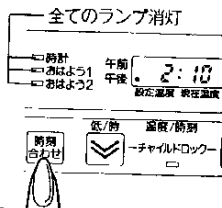 全てのランプ消灯
時計
おはよう1
おはよう2
午前
午後
2:10
設定温度 現在温度
時刻
合わせ
低/時
温度/時刻
チャイルドロック